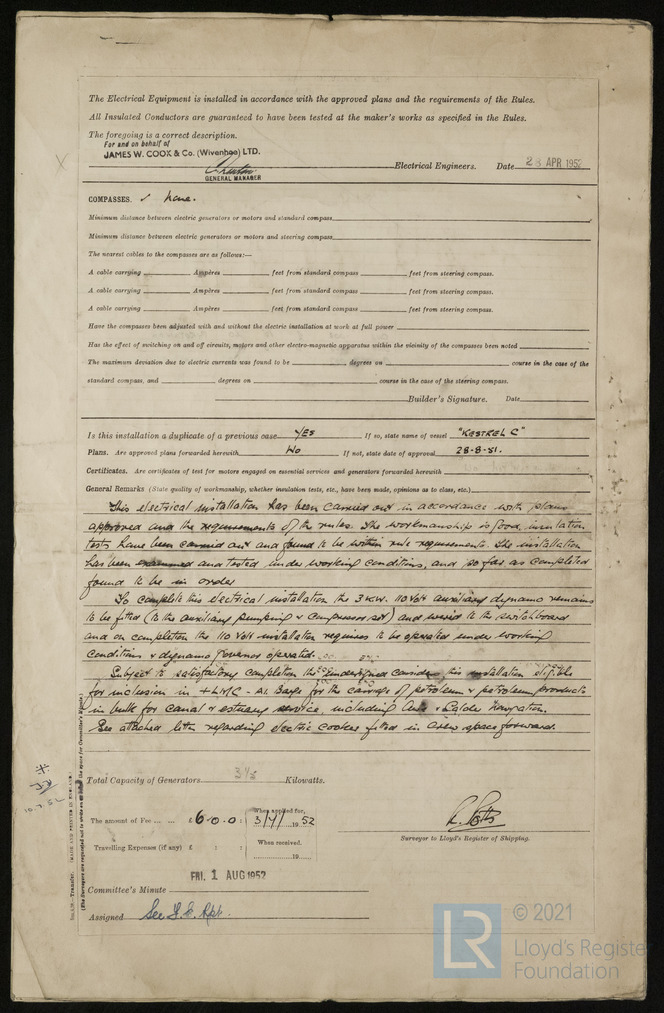 The Electrical Equipment is installed in accordance with the approved plans and the requirements of the Rules.
All Insulated Conductors are guaranteed to have been tested at the maker's works as specified in the Rules.
The foregoing is a correct description.
For and on behalf of
JAMES W. COOK & Co. (Wivenhoe) LTD.
Electrical Engineers. Date 28 APR 1952
GENERAL MANAGER
COMPASSES. ✓ None.
Minimum distance between electric generators or motors and standard compass
Minimum distance between electric generators or motors and steering compass
The nearest cables to the compasses are as follows:—
A cable carrying Ampères feet from standard compass feet from steering compass.
A cable carrying Ampères feet from standard compass feet from steering compass.
A cable carrying Ampères feet from standard compass feet from steering compass.
Have the compasses been adjusted with and without the electric installation at work at full power
Has the effect of switching on and off circuits, motors and other electro-magnetic apparatus within the vicinity of the compasses been noted
The maximum deviation due to electric currents was found to be degrees on course in the case of the
standard compass, and degrees on course in the case of the steering compass.
Builder's Signature. Date
Is this installation a duplicate of a previous case YES If so, state name of vessel "KESTREL C"
Plans. Are approved plans forwarded herewith No If not, state date of approval 28-8-51.
Certificates. Are certificates of test for motors engaged on essential services and generators forwarded herewith
General Remarks (State quality of workmanship, whether insulation tests, etc., have been made, opinions as to class, etc.)
This electrical installation has been carried out in accordance with plans
approved and the requirements of the rules. The workmanship is good, insulation
tests have been carried out and found to be within rule requirements. The installation
has been examined and tested under working conditions, and so far as completed
found to be in order
To complete this electrical installation the 3 KW. 110 Volt auxiliary dynamo remains
to be fitted (to the auxiliary pumping & compressor set) and wired to the switchboard
and on completion the 110 Volt installation requires to be operated under working
conditions & dynamo governor operated.
Subject to satisfactory completion the undersigned considers this installation eligible
for inclusion in + LMC - A1 Barge for the carriage of petroleum & petroleum products
in bulk for canal & estuary service, including Aire & Calder Navigation.
See attached letter regarding electric cooker fitted in crew space forward.
Total Capacity of Generators 3½ Kilowatts.
The amount of Fee ... ... £6 : 0 : 0 : When applied for, 3/7/ 1952
Travelling Expenses (if any) £ : : When received. 19
Surveyor to Lloyd's Register of Shipping.
FRI. 1 AUG 1952
Committee's Minute
Assigned See F.E. Rpt.
10.7.52
Transfer. (MADE AND PRINTED IN ENGLAND)
(The Surveyors are requested not to write on or below the space for Committee's Minute.)
LR
© 2021
Lloyd's Register
Foundation